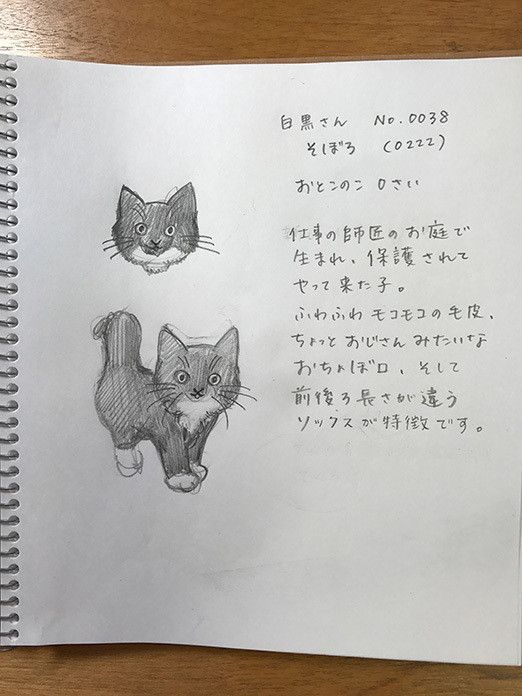 白黒さん No.0038
そぼろ (0222)
おとこのこ 0さい
仕事の師匠のお庭で
生まれ、保護されて
やって来た子。
ふわふわ モコモコの毛皮、
ちょっと おじさん みたいな
おちょぼ口、そして
前後ろ長さが違う
ソックスが特徴です。